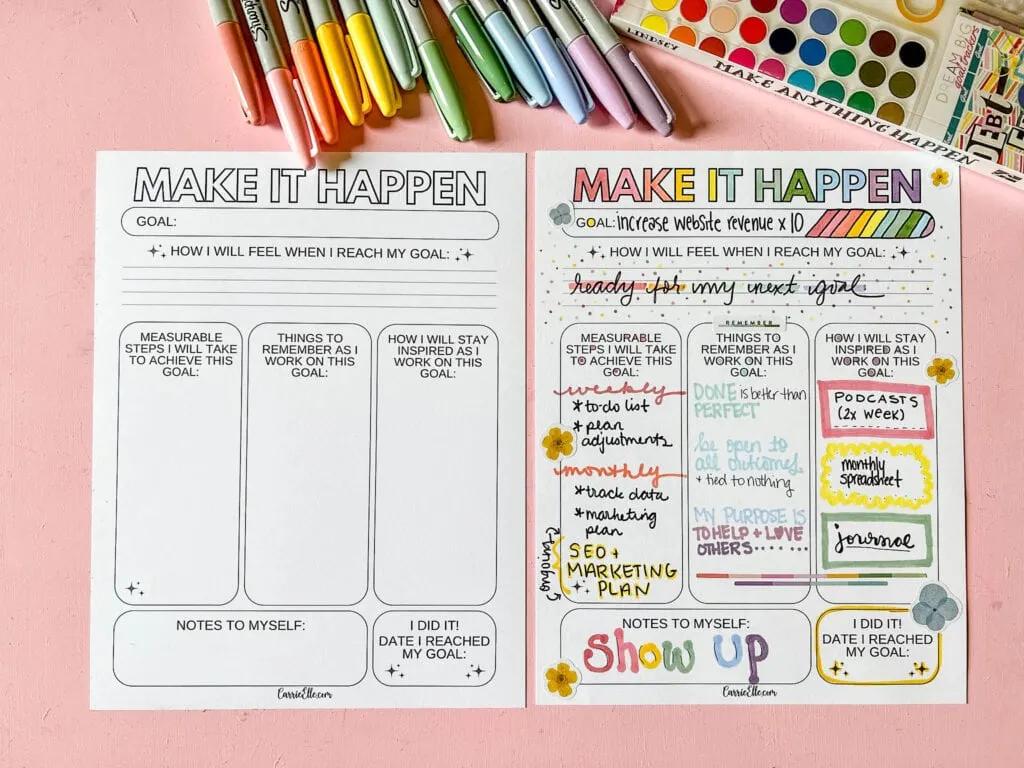 Sharpie
LINDSEY
MAKE ANYTHING HAPPEN
DREAM BIG
goal trackers
DEBT
MAKE IT HAPPEN
GOAL:
HOW I WILL FEEL WHEN I REACH MY GOAL:
MEASURABLE
STEPS I WILL TAKE
TO ACHIEVE THIS
GOAL:
THINGS TO
REMEMBER AS I
WORK ON THIS
GOAL:
HOW I WILL STAY
INSPIRED AS I
WORK ON THIS
GOAL:
NOTES TO MYSELF:
I DID IT!
DATE I REACHED
MY GOAL:
CarrieElle.com
MAKE IT HAPPEN
GOAL: increase website revenue x 10
HOW I WILL FEEL WHEN I REACH MY GOAL:
ready for my next goal
REMEMBER
MEASURABLE
STEPS I WILL TAKE
TO ACHIEVE THIS
GOAL:
weekly
*to-do list
*plan
adjustments
monthly
*track data
*marketing
plan
ongoing
SEO +
MARKETING
PLAN
THINGS TO
REMEMBER AS I
WORK ON THIS
GOAL:
DONE is better than
PERFECT
be open to
all outcomes
+ tied to nothing
MY PURPOSE IS
TO HELP + LOVE
OTHERS......
HOW I WILL STAY
INSPIRED AS I
WORK ON THIS
GOAL:
PODCASTS
(2x WEEK)
monthly
spreadsheet
journal
NOTES TO MYSELF:
Show UP
I DID IT!
DATE I REACHED
MY GOAL:
CarrieElle.com